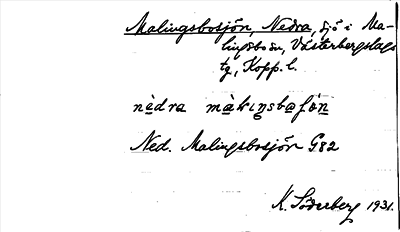 Malingsbosjön, Nedra, sjö i Ma-
lingsbo sn, Västerbergslags
tg, Kopp. l.
nèdra màlıŋsbo̲ʃö̀n
Ned. Malingsbosjön G82
K. Söderberg 1931.